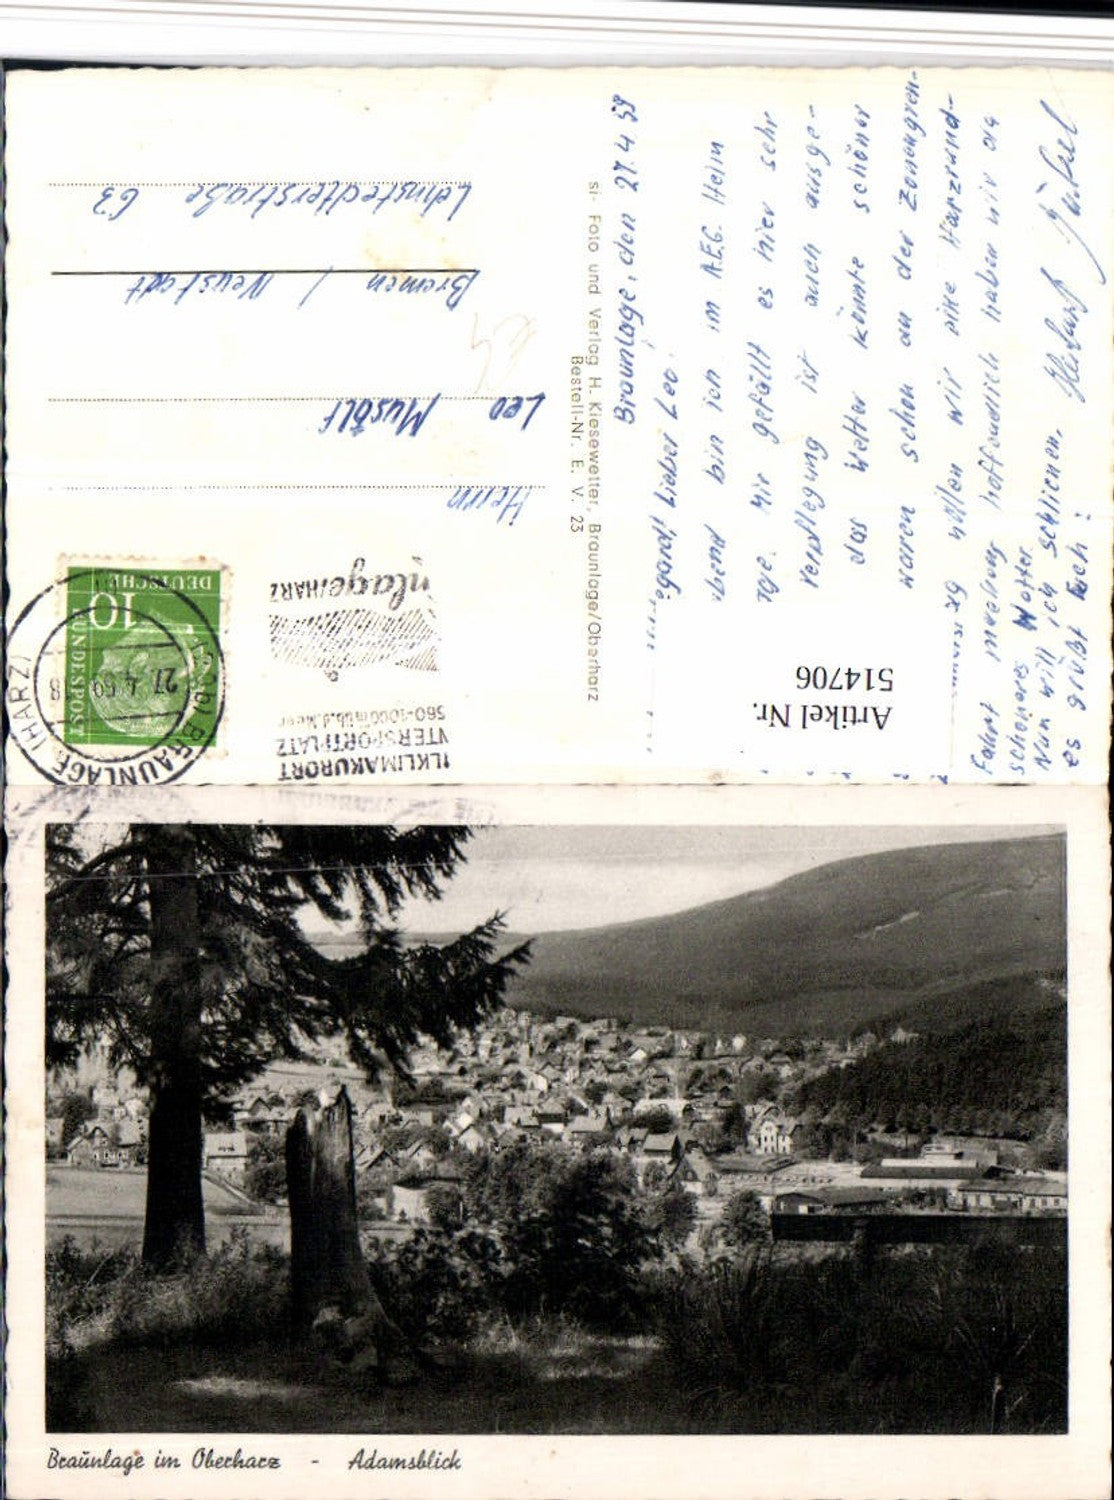 Braunlage, den 27.4.59
Lieber Leo!
bin ich im A.E.G. Heim
Tage. Mir gefällt es hier sehr
Verpflegung ist auch ausge-
das Wetter könnte schöner
waren schon an der Zonengren-
wollen wir eine Harzrund-
Fahrt machen hoffendlich haben wir da
schöneres Wetter.
Nun will ich schlienen,
es grüßt Euch:
si- Foto und Verlag H. Kiesewetter, Braunlage/Oberharz
Bestell-Nr. E. V. 23
ILKLIMAKURORT
NTERSPORTPLATZ
560-1000m üb.d.Meer
nlage/HARZ
BRAUNLAGE (HARZ)
27.4.59
DEUTSCHE
BUNDESPOST
10
Herrn
Leo Musölf
Bremen / Neustadt
Lehnstedterstraße 63
Artikel Nr.
514706
Braunlage im Oberharz - Adamsblick